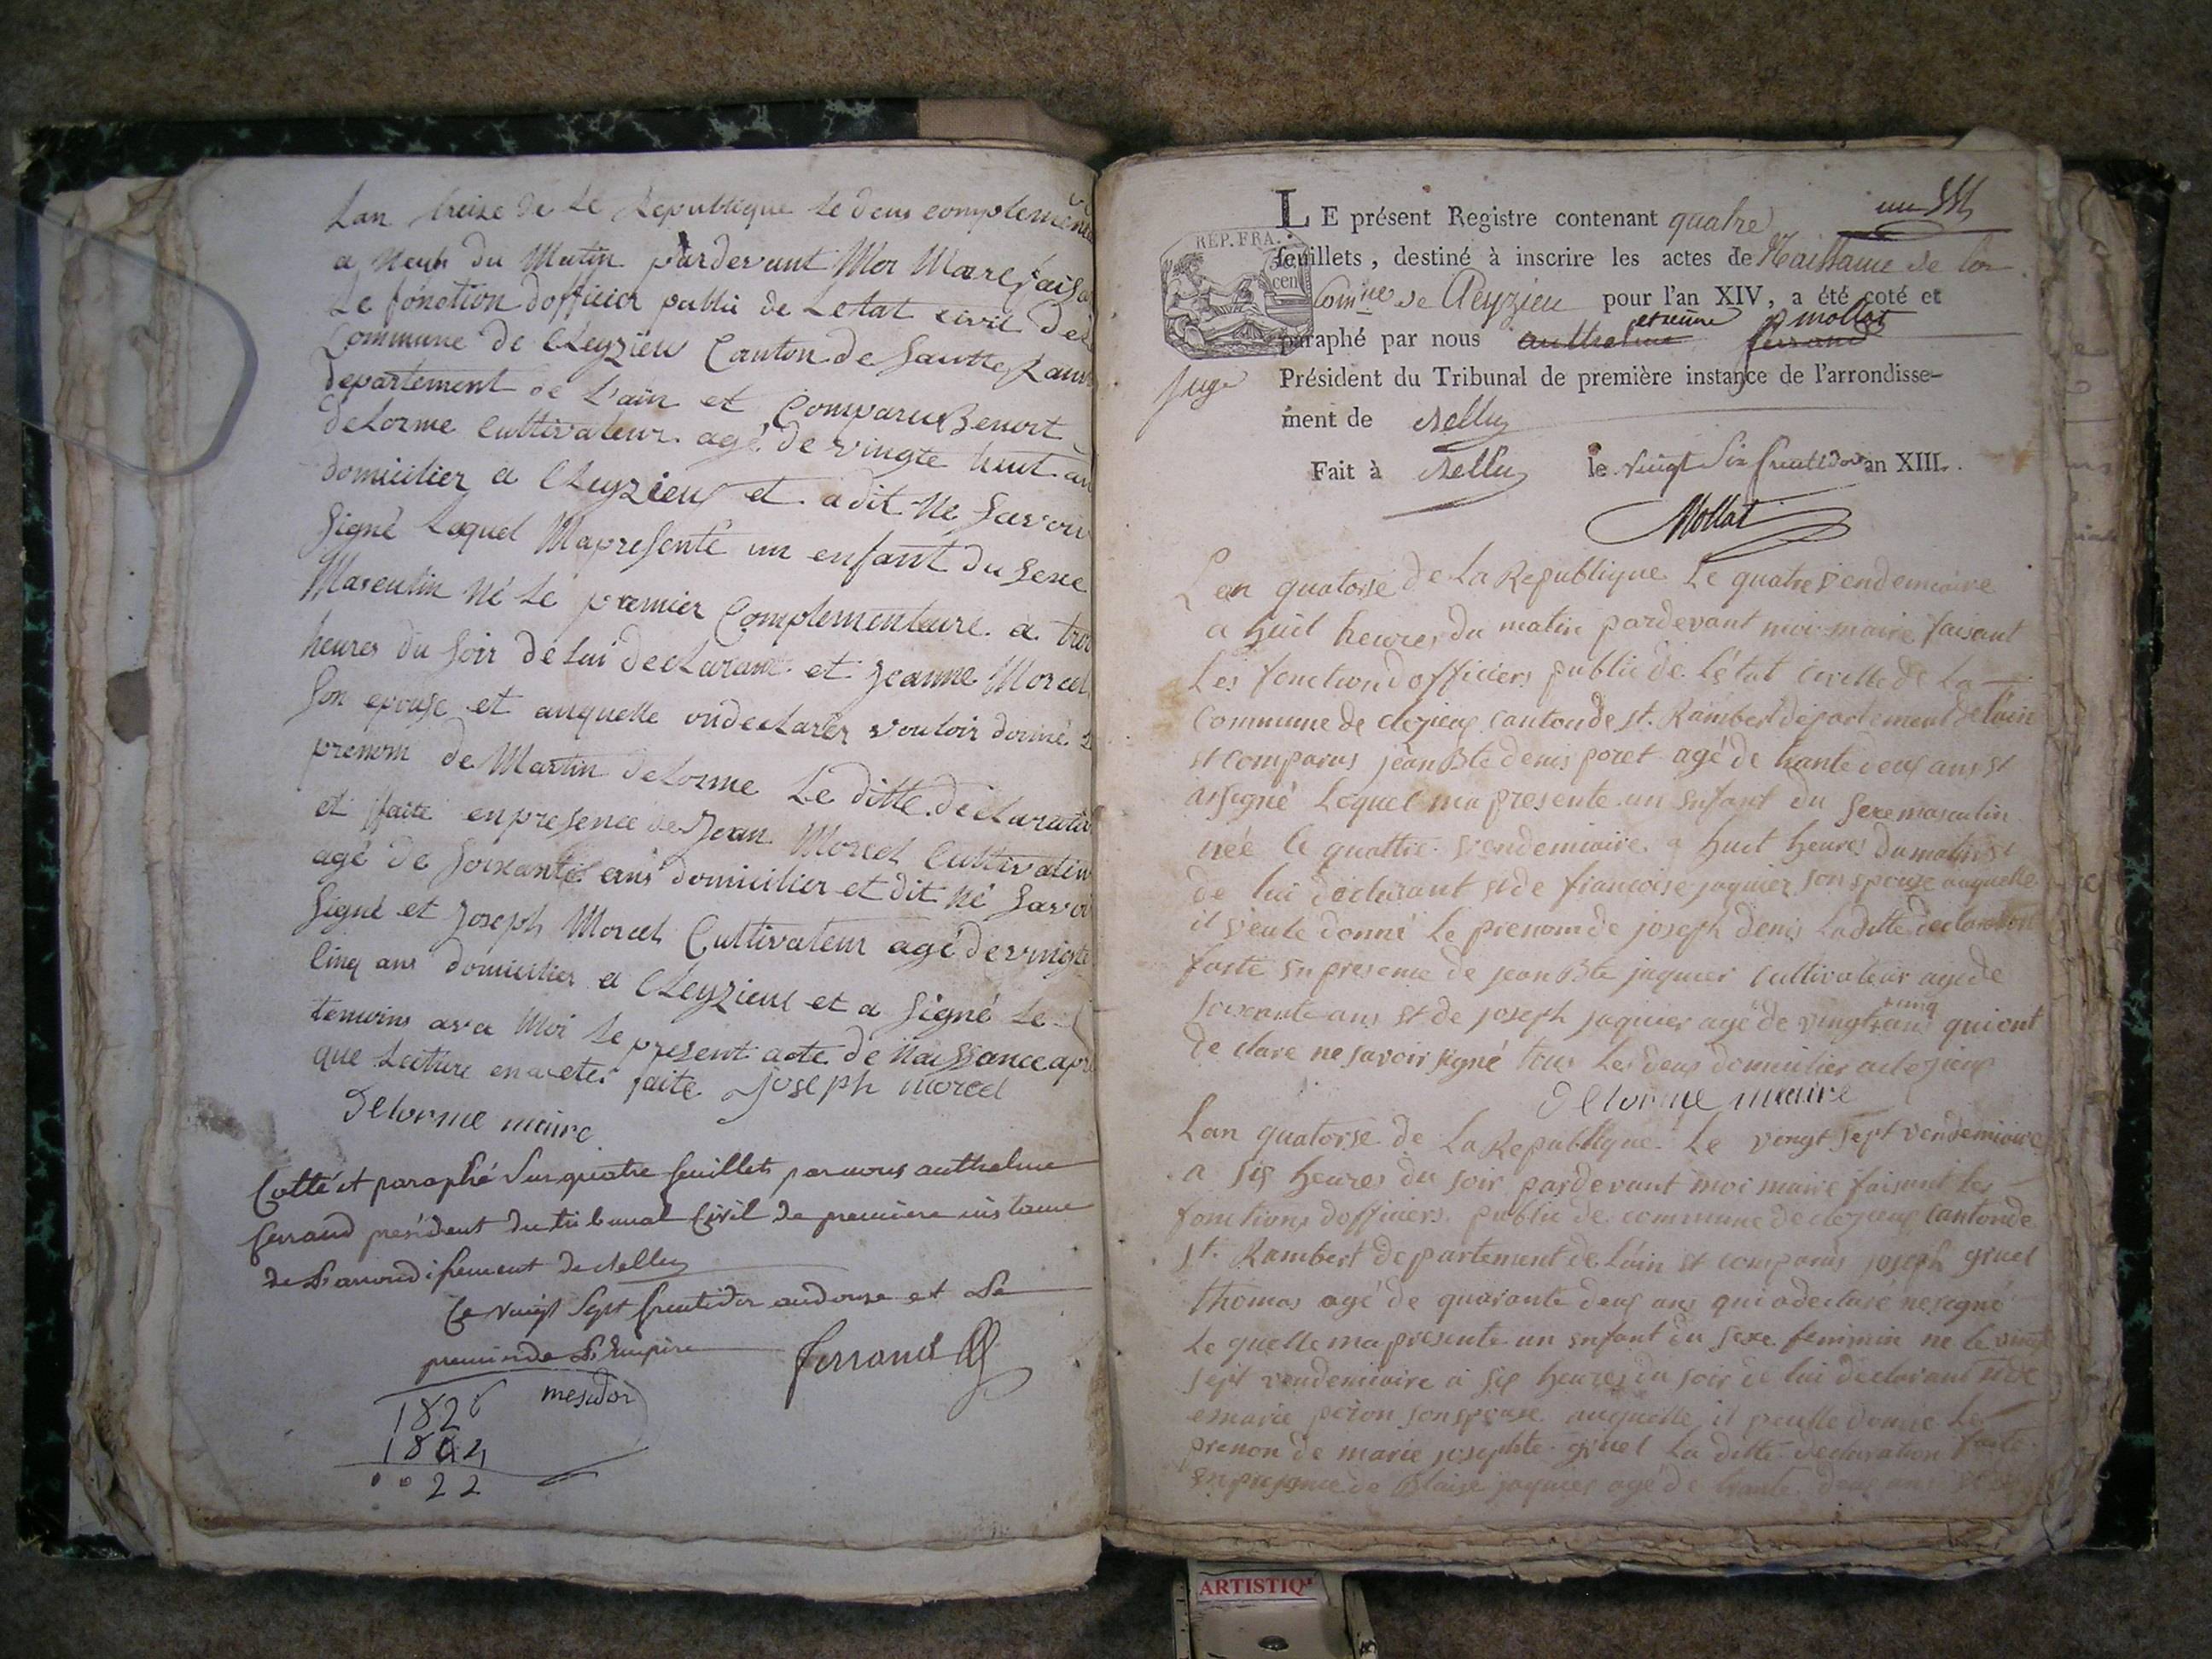 Lan treize de Le Republique le deux complementa
a neuf du Matin pardevant Moi Maire faisa
Le fonction dofficier public de Letat civil de
Commune de Cleyzieu Canton de
departement de L'ain et Comparu Benoit
deLorme Cultivateur agé de vingte huit an
domicilier a Cleyzieu et a dit ne Savoir
Signé Lequel Mapresenté un enfant du Sexe
Masculin né Le premier Complementaire a troi
heures du Soir de lui declarant et Jeanne Morcel
Son epouse et auquelle vouloir donné
prenom de Martin deLorme Le ditte declaratio
et faite enpresence de Jean Morcel Cultivateur
agé de Soixante ans domicilier et dit né Savoi
Signé et Joseph Morcel Cultivateur agé de vingte
Cinq ans domicilier a Cleyzieu et a Signé Le
temoins avec Moi le present acte de naissance apre
que Lecture en a eter faite Joseph morcel
Delorme maire
Cotté et paraphé Sur quatre feuillets par nous anthelme
ferrand président du tribunal Civil de premiere instance
de L'arrondissement de Belley
Ce vingt Sept fructidor an douze et Le
premier de L'Empire ferrand
mesidor
1826
1804
0022
un
LE présent Registre contenant quatre
REP. FRA.
feuillets, destiné à inscrire les actes de Naissance de la
cen
Comne de Cleyzieu pour l'an XIV, a été coté et
etienne mollat
paraphé par nous anthelme ferrand
juge Président du Tribunal de première instance de l'arrondisse-
ment de Belley
Fait à Belley le vingt Six fructidor an XIII.
Mollat
Lan quatorse de La Republique Le quatre vendemiaire
a huit heures du matin pardevant moi maire faisant
Les fonction dofficiers public de l'état civille de La
Commune de clezieux canton de st. Rambert departement de l'ain
st comparus jean Bte denis poret agé de trante deux ans st
Lequel ma presente un enfant du sexe masculin
née le quattre vendemiaire a huit heures du matin st
de lui declarant st de francoise jaquier son spouse auquelle
il veule donné Le prenom de joseph denis La ditte declaration
faite sn presence de jean Bte jaquier cultivateur age de
soixante ans st de joseph jaquier agé de vingt cinq ans qui ont
declare ne savoir signé tous Les deux domicilier a clezieux
Delorme maire
Lan quatorse de La Republique Le vengt sept vendemiaire
a six heures du soir pardevant moi maire faisant les
fonctions dofficiers public de commune de clezieux canton de
st. Rambert departement de l'ain st comparus joseph gruel
thomas agé de quarante deux ans qui a declaré ne signé
Le quelle ma presente un snfant du sexe feminin ne le vingt
sept vendemiaire a six heures du soir de lui declarant st de
marie son spouse auquelle il veulle donné Le
prenon de marie josephte gruel La ditte declaration faite
sn presence de Blaise jaquier agé de trante deux ans
ARTISTIQ